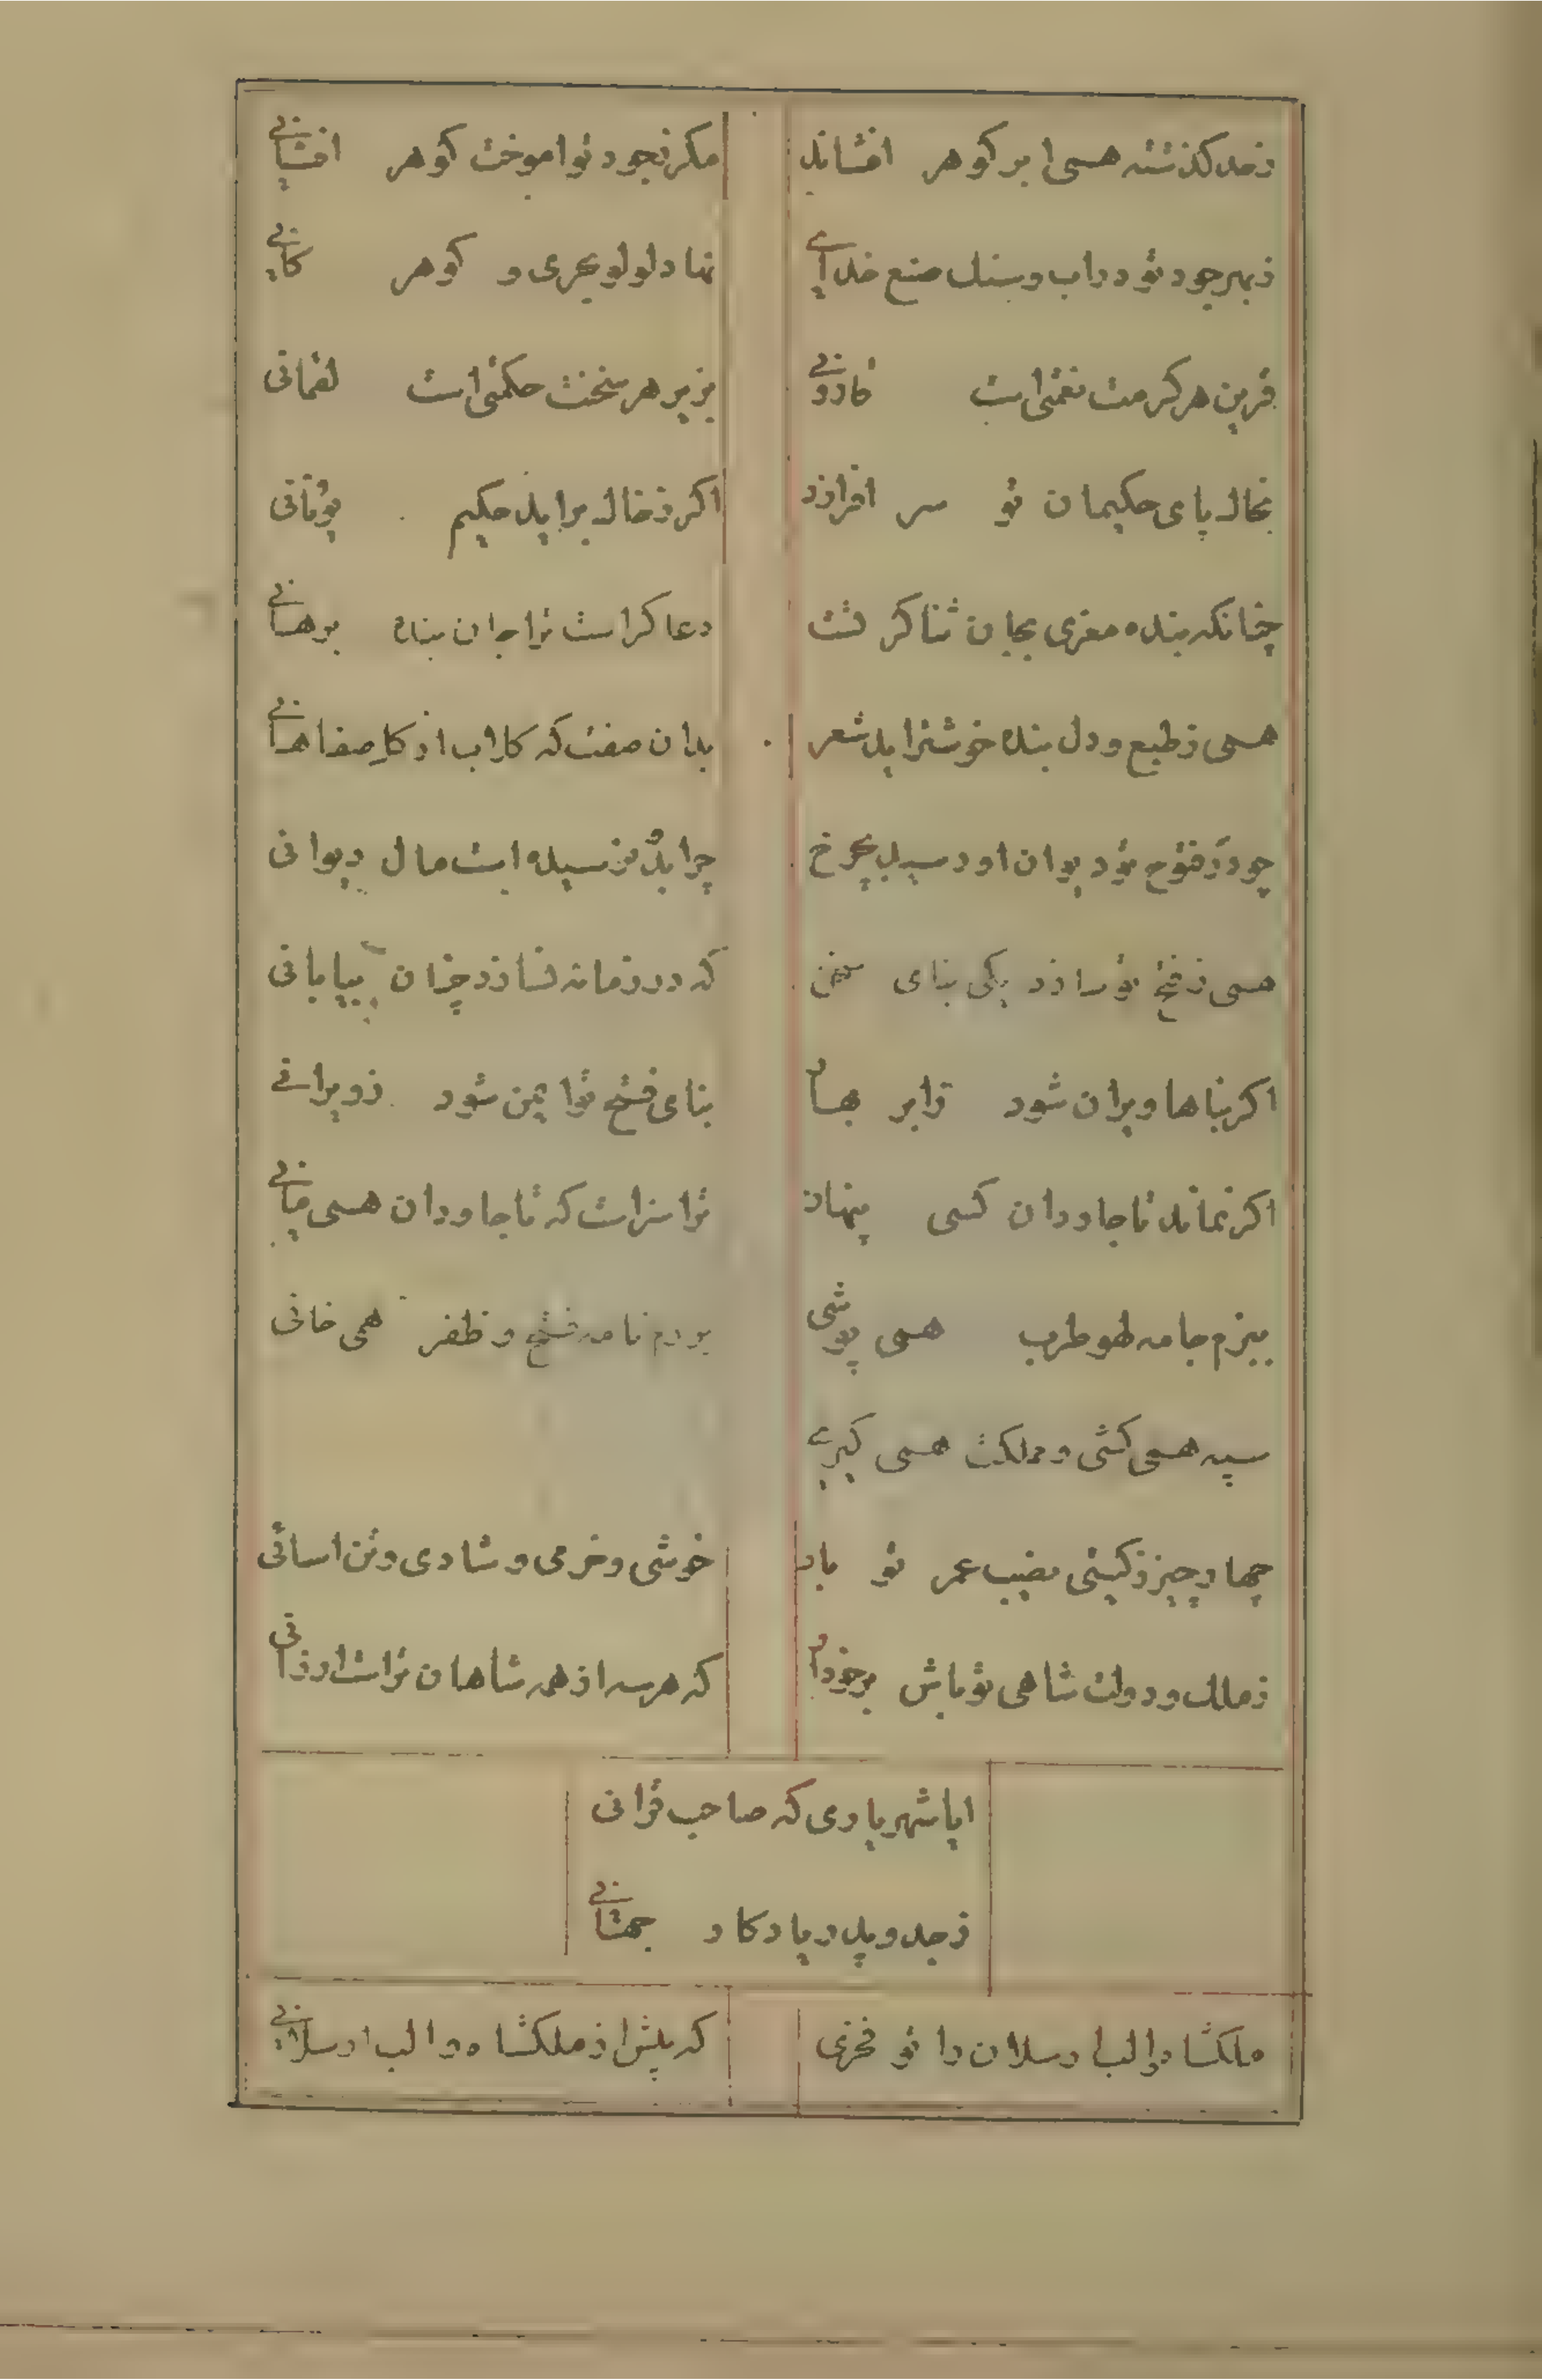 زحد گذشته همی ابر گوهر افشاند مگر زجود تو اموخت گوهر افشانی
زبهر جود تو در اب و سنک صنع خدای نهاد لولو بحری و گوهر کانی
قرین هر کرمت نعمتی است قارونی بزیر هر سخنت حکمتی است لقمانی
بخاک پای حکیمان تو سر افرازد اکر زخاک براید حکیم یونانی
چنانکه بنده معزی بجان ثناکر تست دعاکر است ترا جان بنده برهانی
همی زطبع و دل بنده خوشتر اید شعر بدان صفت که کلاب از کل صفاهانی
چو در فتوح تو دیوان او رسید بچرخ چرا بدو نرسیده است مال دیوانی
همی زفتح تو سازد یکی بنای سخن که در زمانه نسازد چنان بیابانی
اکر بناها ویران شود زابر بهار بنای فتح تو ایمن شود زویرانی
اکر نماند تا جاودان کسی بنهاد ترا سزاست که تا جاودان همی مانی
ببزم جامه لهو طرب همی پوشی برزم نامه فتح و ظفر همی خوانی
سپه همی کشی و مملکت همی کیری
چهار چیز زکیتی نصیب عمر تو باد خوشی و خرمی و شادی و تن اسانی
زملک و دولت شاهی تو باش برخوردار که هر سه از همه شاهان تراست ارزانی
ایا شهریاری که صاحب قرانی
زجد و پدر یادکار جهانی
ملکشاه و الب ارسلان را تو فخری که پیش از ملکشاه و الب ارسلانی